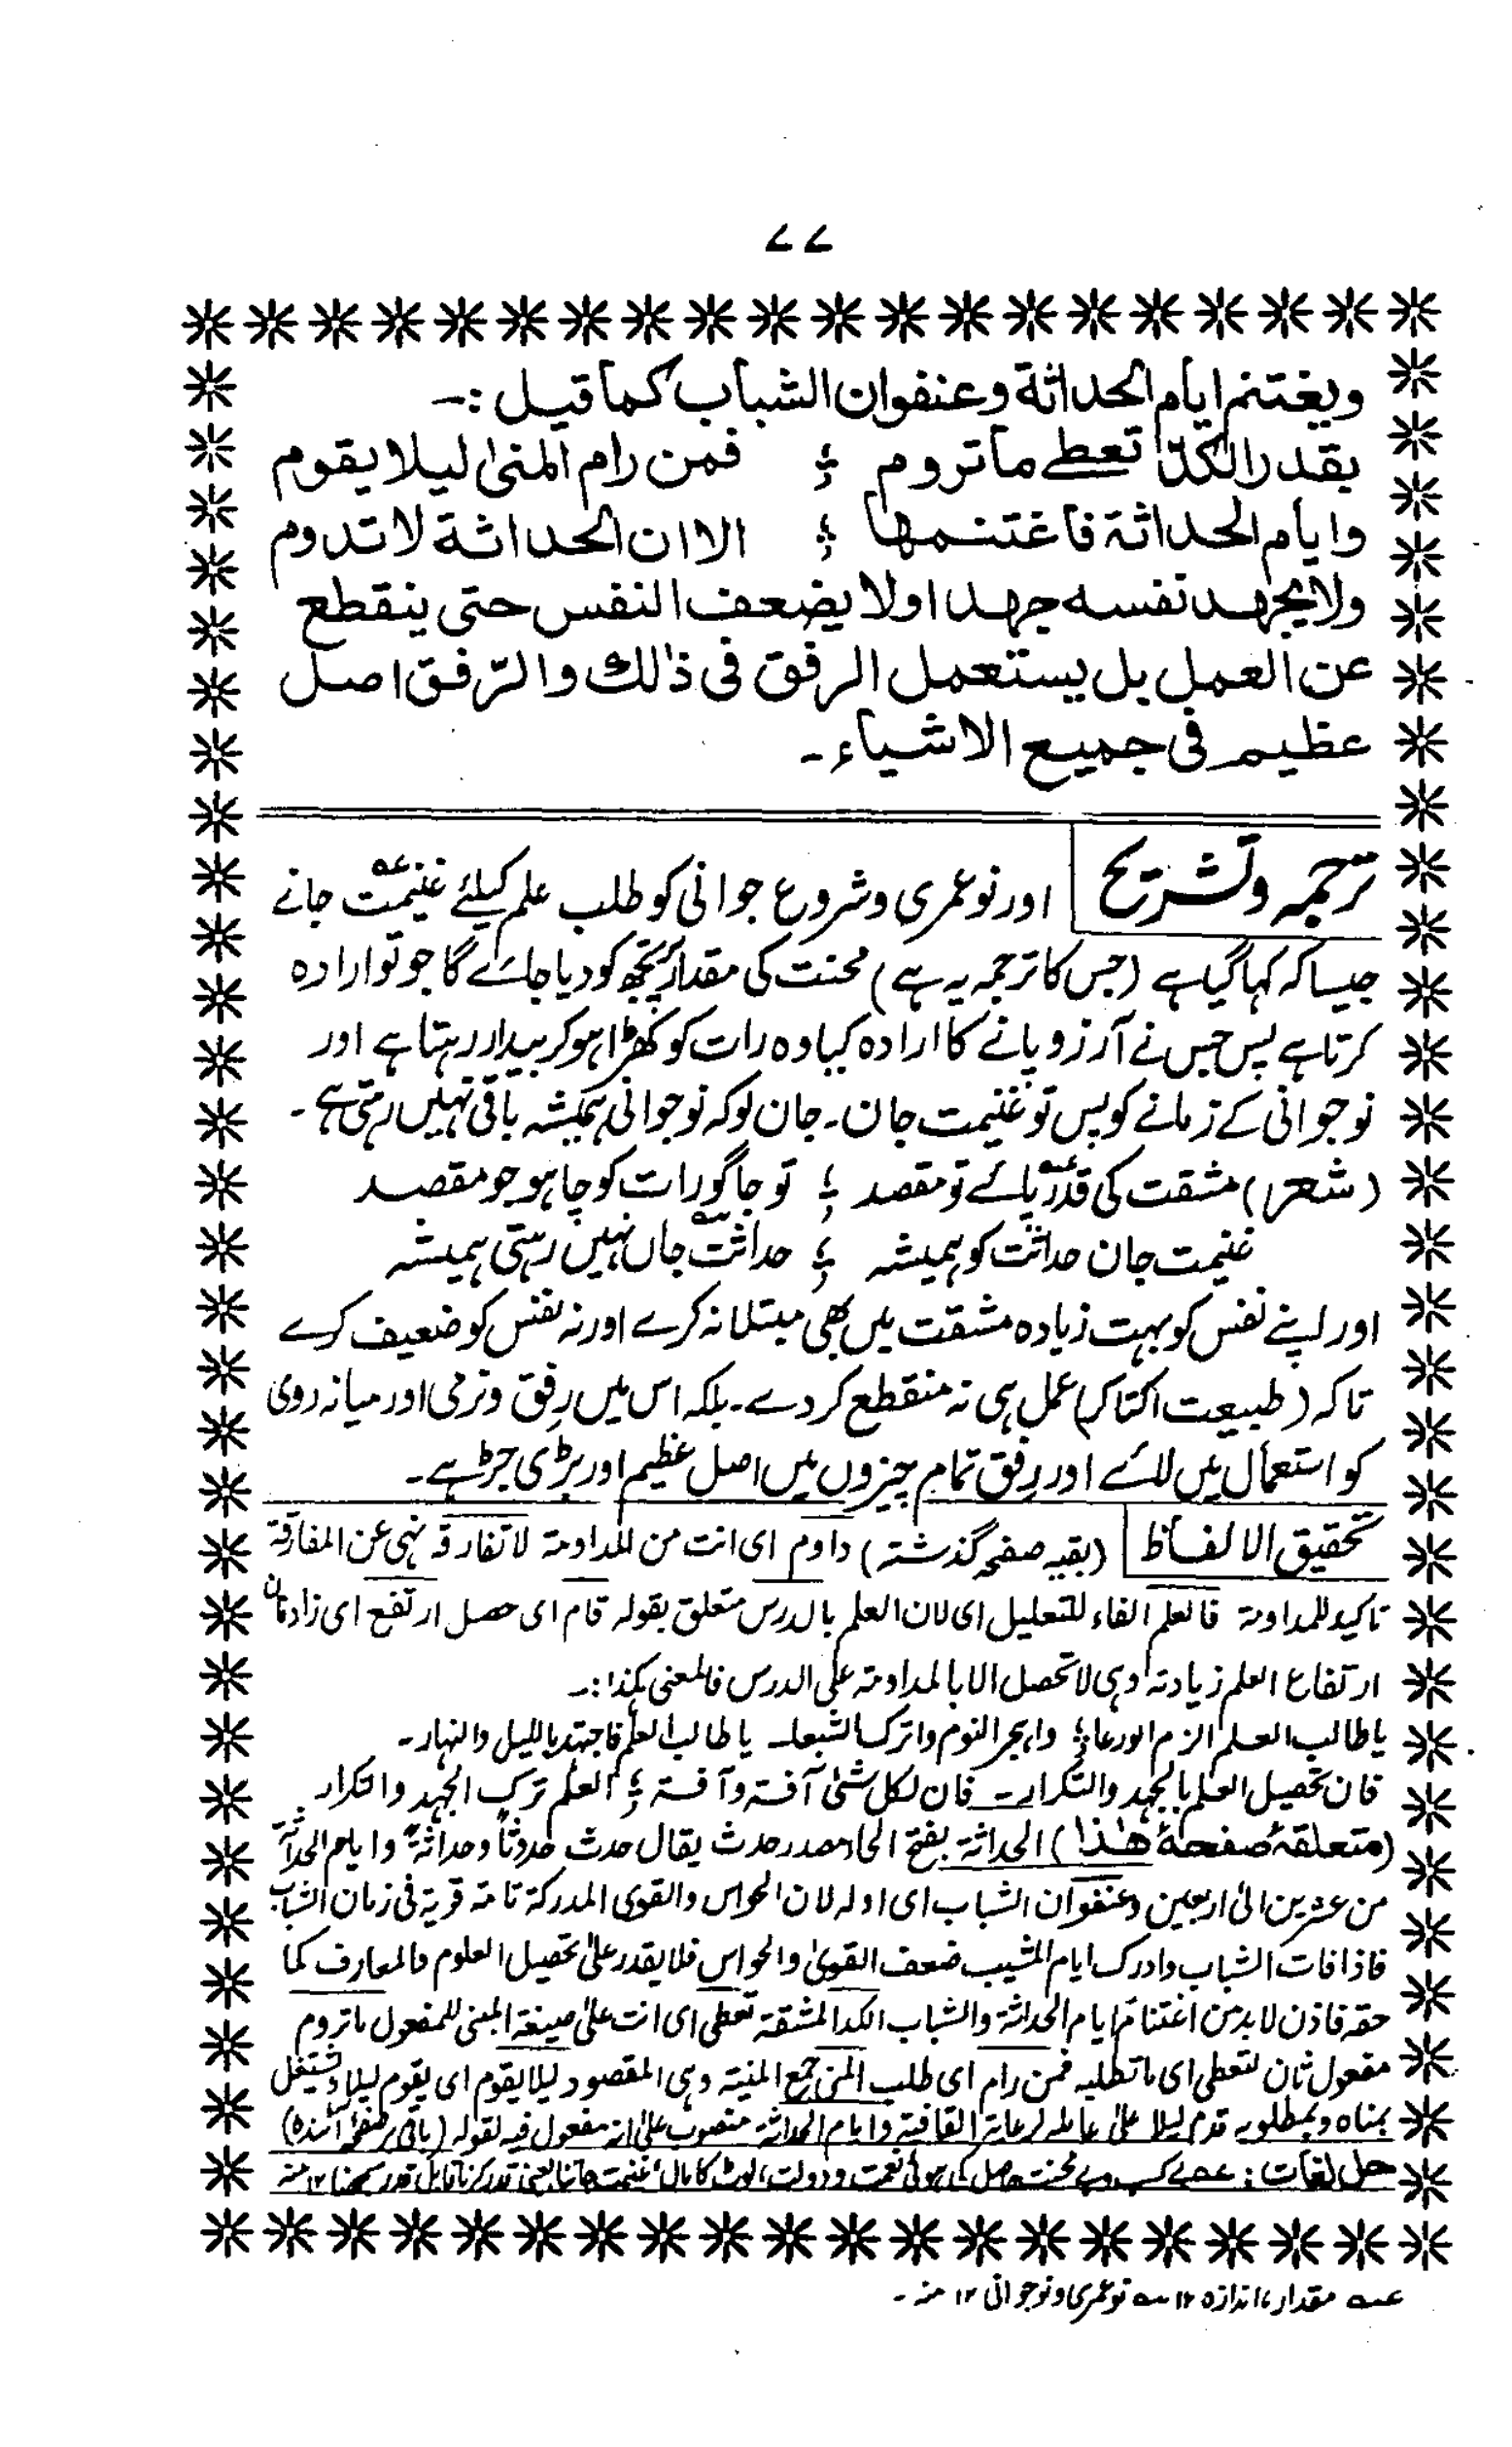 ۷۷
ویغتنم ایام الحداثة وعنفوان الشباب کما قیل :۔
بقدر الکدّ تعطے ما تروم ؛ فمن رام المنیٰ لیلا یقوم
وایام الحداثة فاغتنمها ؛ الا ان الحداثة لا تدوم
ولا یجهد نفسه جهدا ولا یضعف النفس حتی ینقطع
عن العمل بل یستعمل الرفق فی ذٰلك والرّفق اصل
عظیم فی جمیع الاشیاء ۔
ترجمہ وتشریح اور نوعمری وشروع جوانی کو طلب علم کیلئے غنیمت عہ جانے
جیسا کہ کہا گیا ہے (جس کا ترجمہ یہ ہے) محنت کی مقدار تجھ کو دیا جائے گا جو تو ارادہ
کرتا ہے پس جس نے آرزو پانے کا ارادہ کیا وہ رات کو کھڑا ہو کر بیدار رہتا ہے اور
نوجوانی کے زمانے کو پس تو غنیمت جان۔ جان لو کہ نوجوانی ہمیشہ باقی نہیں رہتی ہے ۔
(شعر) مشقت کی قدر پائے تو مقصد ؛ تو جاگو رات کو چاہو جو مقصد
غنیمت جان حداثت کو ہمیشہ ؛ حداثت جاں نہیں رہتی ہمیشہ
اور اپنے نفس کو بہت زیادہ مشقت میں بھی مبتلا نہ کرے اور نہ نفس کو ضعیف کرے
تاکہ (طبیعت اکتا کر) عمل ہی نہ منقطع کر دے۔ بلکہ اس میں رِفق ونرمی اور میانہ روی
کو استعمال میں لائے اور رِفق تمام چیزوں میں اصل عظیم اور بڑی جڑ ہے ۔
تحقیق الالفاظ (بقیہ صفحہ گذشتہ) داوم ای انت من المداومة لا تفارقہ نہی عن المفارقة
تاکید للمداومة فالعلم الفاء للتعلیل ای لان العلم بالدرس متعلق بقولہ قام ای حصل ارتفع ای زاد فان
ارتفاع العلم زیادتہ وہی لا تحصل الا بالمداومة علی الدرس فالمعنی ہکذا :۔
یا طالب العلم الزم الورعا ؛ واہجر النوم واترک الشبعا۔ یا طالب العلم فاجتہد باللیل والنہار ۔
فان تحصیل العلم بالجہد والتکرار ۔ فان لکل شئی آفة وآفة ؛ العلم ترک الجہد والتکرار
(متعلقہ صفحۂ هٰذا) الحداثة بفتح الحاء مصدر حدث یقال حدث حدوثاً وحداثةً وایام الحداثة
من عشرین الیٰ اربعین وعنفوان الشباب ای اولہ لان الحواس والقوی المدرکة تامة قویة فی زمان الشباب
فاذا فات الشباب وادرک ایام المشیب ضعف القویٰ والحواس فلا یقدر علیٰ تحصیل العلوم والمعارف کما
حقہ فاذن لا بد من اغتنام ایام الحداثة والشباب الکد المشقة تعطی ای انت علیٰ صیغة المبنی للمفعول ما تروم
مفعول ثان لتعطی ای ما تطلبہ فمن رام ای طلب المنی جمع المنیة وہی المقصود لیلا یقوم ای یقوم لیلا ویشتغل
بمناہ وبمطلوبہ قدم لیلا علیٰ عاملہ لرعایة القافیة وایام الحداثة منصوب علیٰ انہ مفعول فیہ لقولہ (باقی بر صفحہ آئندہ)
حل لغات : عہ بے کسب وبے محنت حاصل کی ہوئی نعمت ودولت، لوٹ کا مال، غنیمت جاننا یعنی قدر کرنا قابل قدر سمجھنا ۱۲ منہ
عہ مقدار، اندازہ ۱۲ سہ نوعمری ونوجوانی ۱۲ منہ ۔